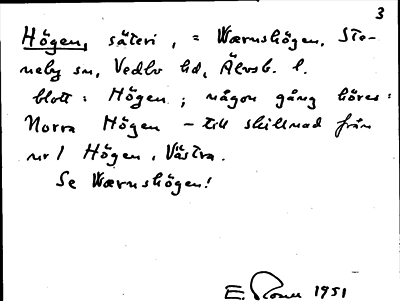 3
Högen, säteri, = Wærnshögen, Ste-
neby sn, Vedbo hd, Älvsb. l.
blott: Högen; någon gång höres:
Norra Högen – till skillnad från
nr 1 Högen, Västra.
Se Wærnshögen!
E. 1951